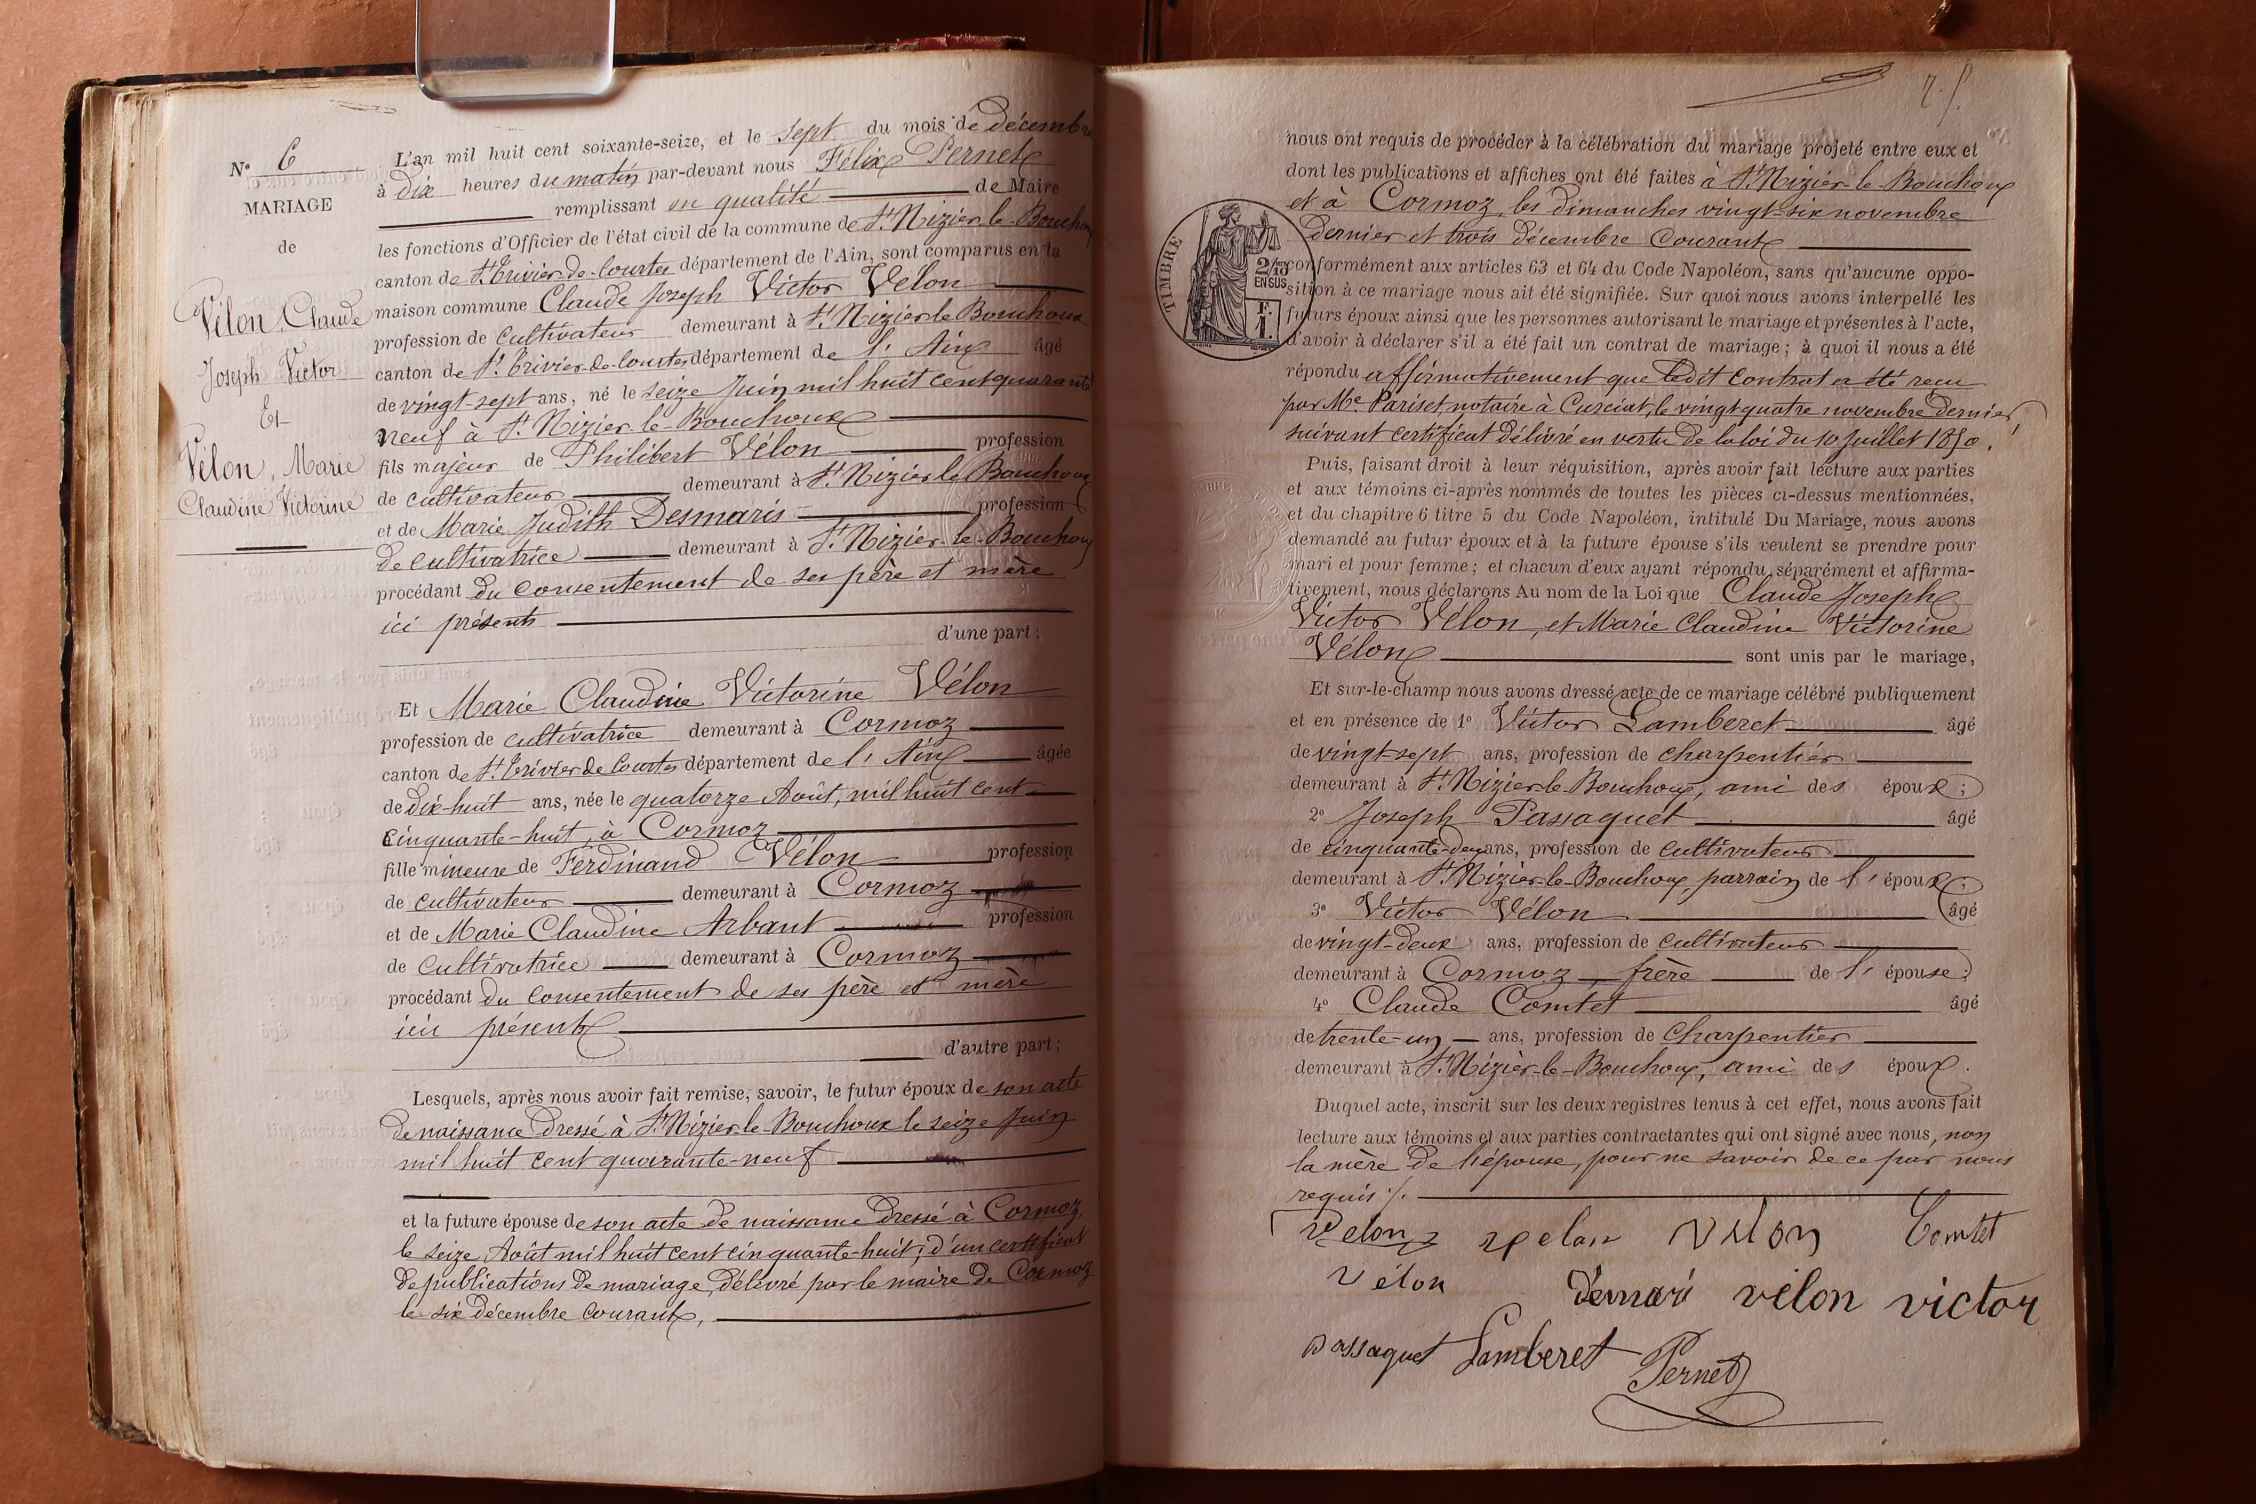 N° 6
MARIAGE
de
Vélon, Claude
Joseph Victor
Et
Vélon, Marie
Claudine Victorine
L'an mil huit cent soixante-seize, et le sept du mois de décembre
à dix heures du matin par-devant nous Félix Pernet
remplissant en qualité de Maire
les fonctions d'Officier de l'état civil de la commune de St Nizier-le-Bouchoux
canton de St Trivier-de-Courtes département de l'Ain, sont comparus en la
maison commune Claude Joseph Victor Vélon
profession de cultivateur demeurant à St Nizier-le-Bouchoux
canton de St Trivier-de-Courtes département de l'Ain âgé
de vingt-sept ans, né le seize Juin mil huit cent quarante
neuf à St Nizier-le-Bouchoux
fils majeur de Philibert Vélon profession
de cultivateur demeurant à St Nizier-le-Bouchoux
et de Marie Judith Desmaris profession
de cultivatrice demeurant à St Nizier-le-Bouchoux
procédant du consentement de ses père et mère
ici présents
d'une part;
Et Marie Claudine Victorine Vélon
profession de cultivatrice demeurant à Cormoz
canton de St Trivier de Courtes département de l'Ain âgée
de dix-huit ans, née le quatorze Août, mil huit cent
cinquante-huit, à Cormoz
fille mineure de Ferdinand Vélon profession
de cultivateur demeurant à Cormoz
et de Marie Claudine Arbant profession
de cultivatrice demeurant à Cormoz
procédant du consentement de ses père et mère
ici présents
d'autre part;
Lesquels, après nous avoir fait remise, savoir, le futur époux de son acte
de naissance dressé à St Nizier-le-Bouchoux le seize Juin
mil huit cent quarante-neuf
et la future épouse de son acte de naissance dressé à Cormoz,
le seize Août mil huit cent cinquante-huit; d'un certificat
de publications de mariage, délivré par le maire de Cormoz
le six décembre courant,
nous ont requis de procéder à la célébration du mariage projeté entre eux et
dont les publications et affiches ont été faites à St Nizier-le-Bouchoux
et à Cormoz, les dimanches vingt-six novembre
dernier et trois décembre courant
TIMBRE
2/10
EN SUS
F.
1.
conformément aux articles 63 et 64 du Code Napoléon, sans qu'aucune oppo-
sition à ce mariage nous ait été signifiée. Sur quoi nous avons interpellé les
futurs époux ainsi que les personnes autorisant le mariage et présentes à l'acte,
d'avoir à déclarer s'il a été fait un contrat de mariage; à quoi il nous a été
répondu affirmativement que ledit contrat a été reçu
par Me Pariset, notaire à Curciat, le vingt-quatre novembre dernier,
suivant certificat délivré en vertu de la loi du 10 Juillet 1850.
Puis, faisant droit à leur réquisition, après avoir fait lecture aux parties
et aux témoins ci-après nommés de toutes les pièces ci-dessus mentionnées,
et du chapitre 6 titre 5 du Code Napoléon, intitulé Du Mariage, nous avons
demandé au futur époux et à la future épouse s'ils veulent se prendre pour
mari et pour femme; et chacun d'eux ayant répondu séparément et affirma-
tivement, nous déclarons Au nom de la Loi que Claude Joseph
Victor Vélon, et Marie Claudine Victorine
Vélon sont unis par le mariage,
Et sur-le-champ nous avons dressé acte de ce mariage célébré publiquement
et en présence de 1° Victor Lamberet âgé
de vingt-sept ans, profession de charpentier
demeurant à St Nizier-le-Bouchoux, ami des époux;
2° Joseph Passaquet âgé
de cinquante-deux ans, profession de cultivateur
demeurant à St Nizier-le-Bouchoux, parrain de l'époux;
3° Victor Vélon âgé
de vingt-deux ans, profession de cultivateur
demeurant à Cormoz, frère de l'épouse;
4° Claude Comtet âgé
de trente-un ans, profession de Charpentier
demeurant à St Nizier-le-Bouchoux, ami des époux.
Duquel acte, inscrit sur les deux registres tenus à cet effet, nous avons fait
lecture aux témoins et aux parties contractantes qui ont signé avec nous, non
la mère de l'épouse, pour ne savoir de ce par nous
requis ./.
Velon velon vélon Comtet
vélon démari vélon victor
passaquet Lamberet Pernet